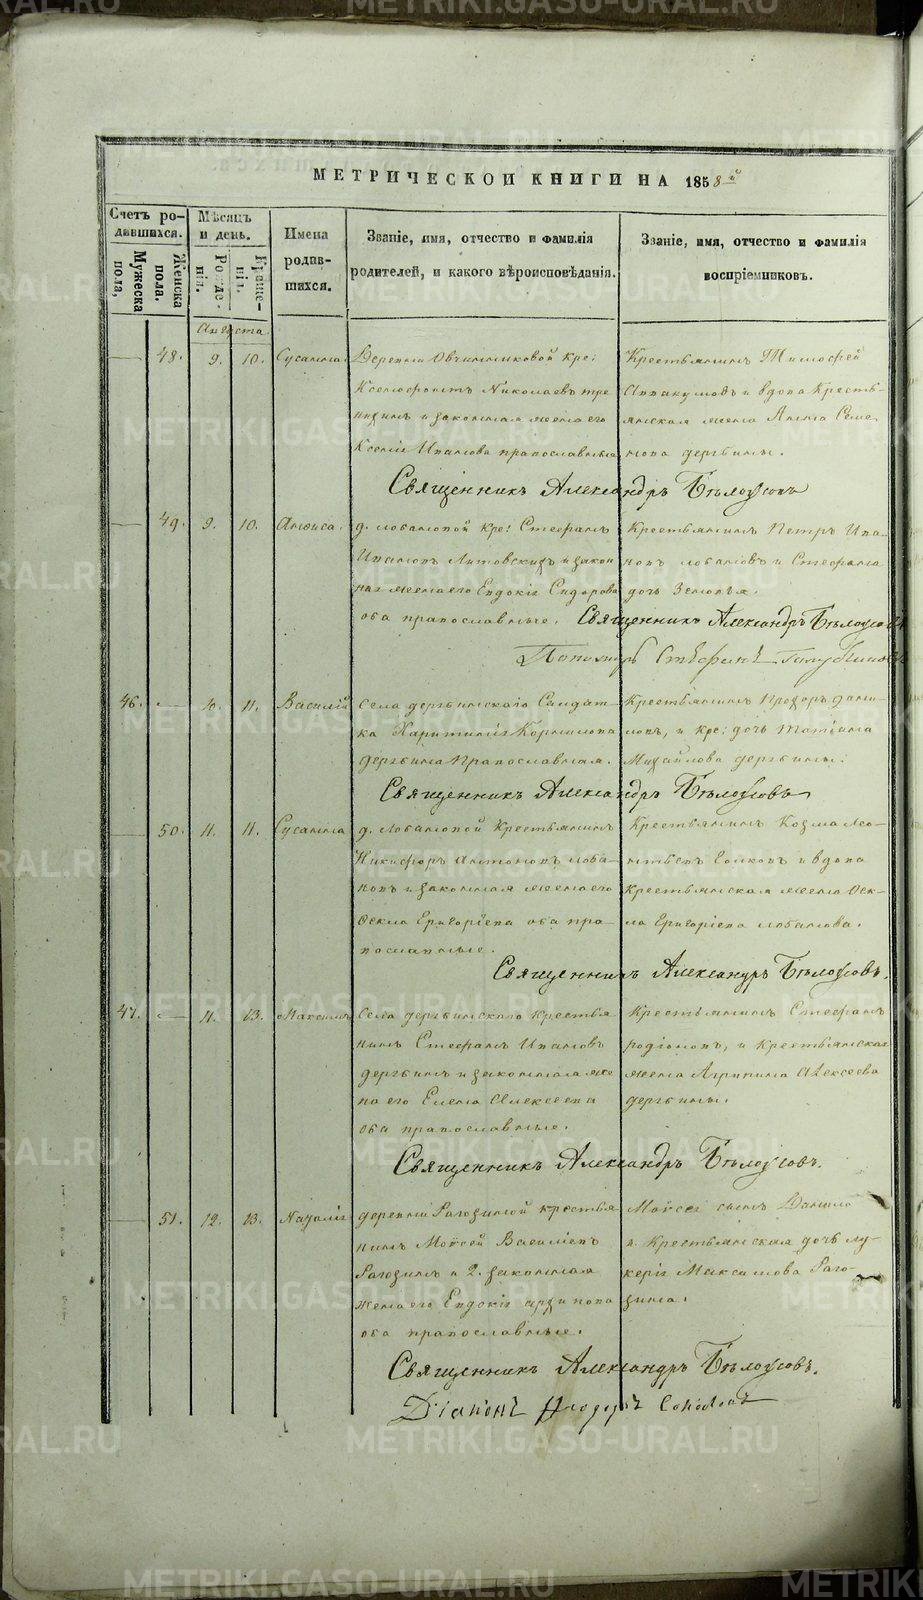 МЕТРИЧЕСКОЙ КНИГИ НА 1858й
Счетъ родившихся.
Мужеска пола,
Женска пола.
Мѣсяцъ и день.
Рожденія.
Крещенія.
Имена родившихся.
Званіе, имя, отчество и фамилія родителей, и какого вѣроисповѣданія.
Званіе, имя, отчество и фамилія воспріемниковъ.
Августа
48. 9. 10. Сусанна.
Деревни Овчинниковой кре:
Ксенофонтъ Николаевъ
и законная жена его
Ксенія Иванова православные
Крестьянинъ Тимофей
и вдова Кресть-
янская жена Анна Семе-
нова дергвины.
Священникъ Александръ Бѣлоусовъ
49. 9. 10. Анфиса.
д. лобановой кре: Стефанъ
Ивановъ Литовскихъ и закон
ная жена его Евдокія Сидорова
оба православные.
Крестьянинъ Петръ Ива-
новъ лобановъ и Стефанида
дочь
Священникъ Александръ Бѣлоусовъ
Пономарь Стефанъ
46. — 10. 11. Василій
Села дергвинскаго Салдат-
ка Харитинія Корнилова
дергвина Православная.
Крестьянинъ Прохоръ Дани-
ловъ, и кре: дочь Татіана
Михайлова дергвины.
Священникъ Александръ Бѣлоусовъ
50. 11. 11. Сусанна
д. Лобановой Крестьянинъ
Никифоръ Антоновъ лоба-
новъ и законная жена его
Фекла Григоріева оба пра-
вославные.
Крестьянинъ Козма Лео-
нтьевъ и вдова
Крестьянская жена Фек-
ла Григоріева лобанова.
Священникъ Александръ Бѣлоусовъ.
47. — 11. 13. Максимъ
Села дергвинскаго крестья
нинъ Стефанъ Ивановъ
дергвинъ и законная же
на его Елена Алексеева
оба православные.
Крестьянинъ Стефанъ
родіоновъ, и Крестьянская
жена Агрипина Алексеева
дергвины.
Священникъ Александръ Бѣлоусовъ.
51. 12. 13. Наталія
деревни Рагозиной крестья
нинъ Моѵсей Василіевъ
Рагозинъ и 2. законная
жена его Евдокія
оба православные.
Моѵсея сынъ Данило
и Крестьянская дочь лу-
керія Максимова Раго-
зина.
Священникъ Александръ Бѣлоусовъ.
Діаконъ Ѳеодоръ
METRIKI.GASO-URAL.RU